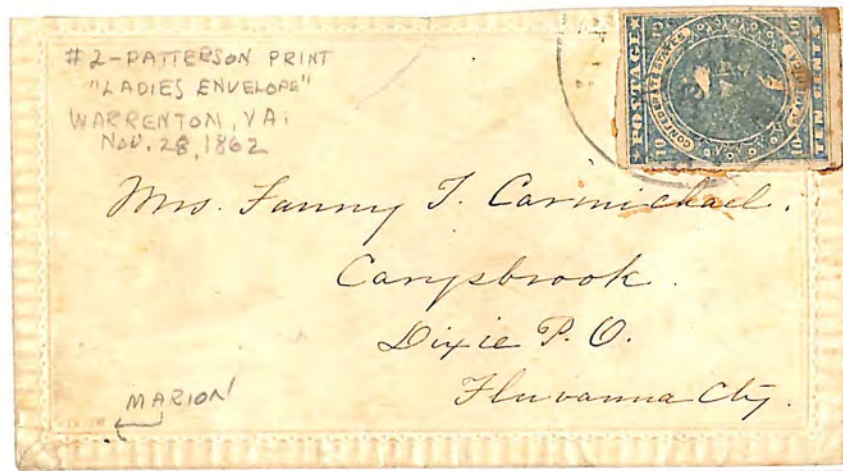 #2-PATTERSON PRINT
"LADIES ENVELOPE"
WARRENTON, VA.
NOV. 28, 1862
POSTAGE
CONFEDERATE STATES
TEN CENTS
10
10
Mrs. Fanny T. Carmichael.
Carysbrook.
Dixie P. O.
Fluvanna Cty.
MARION